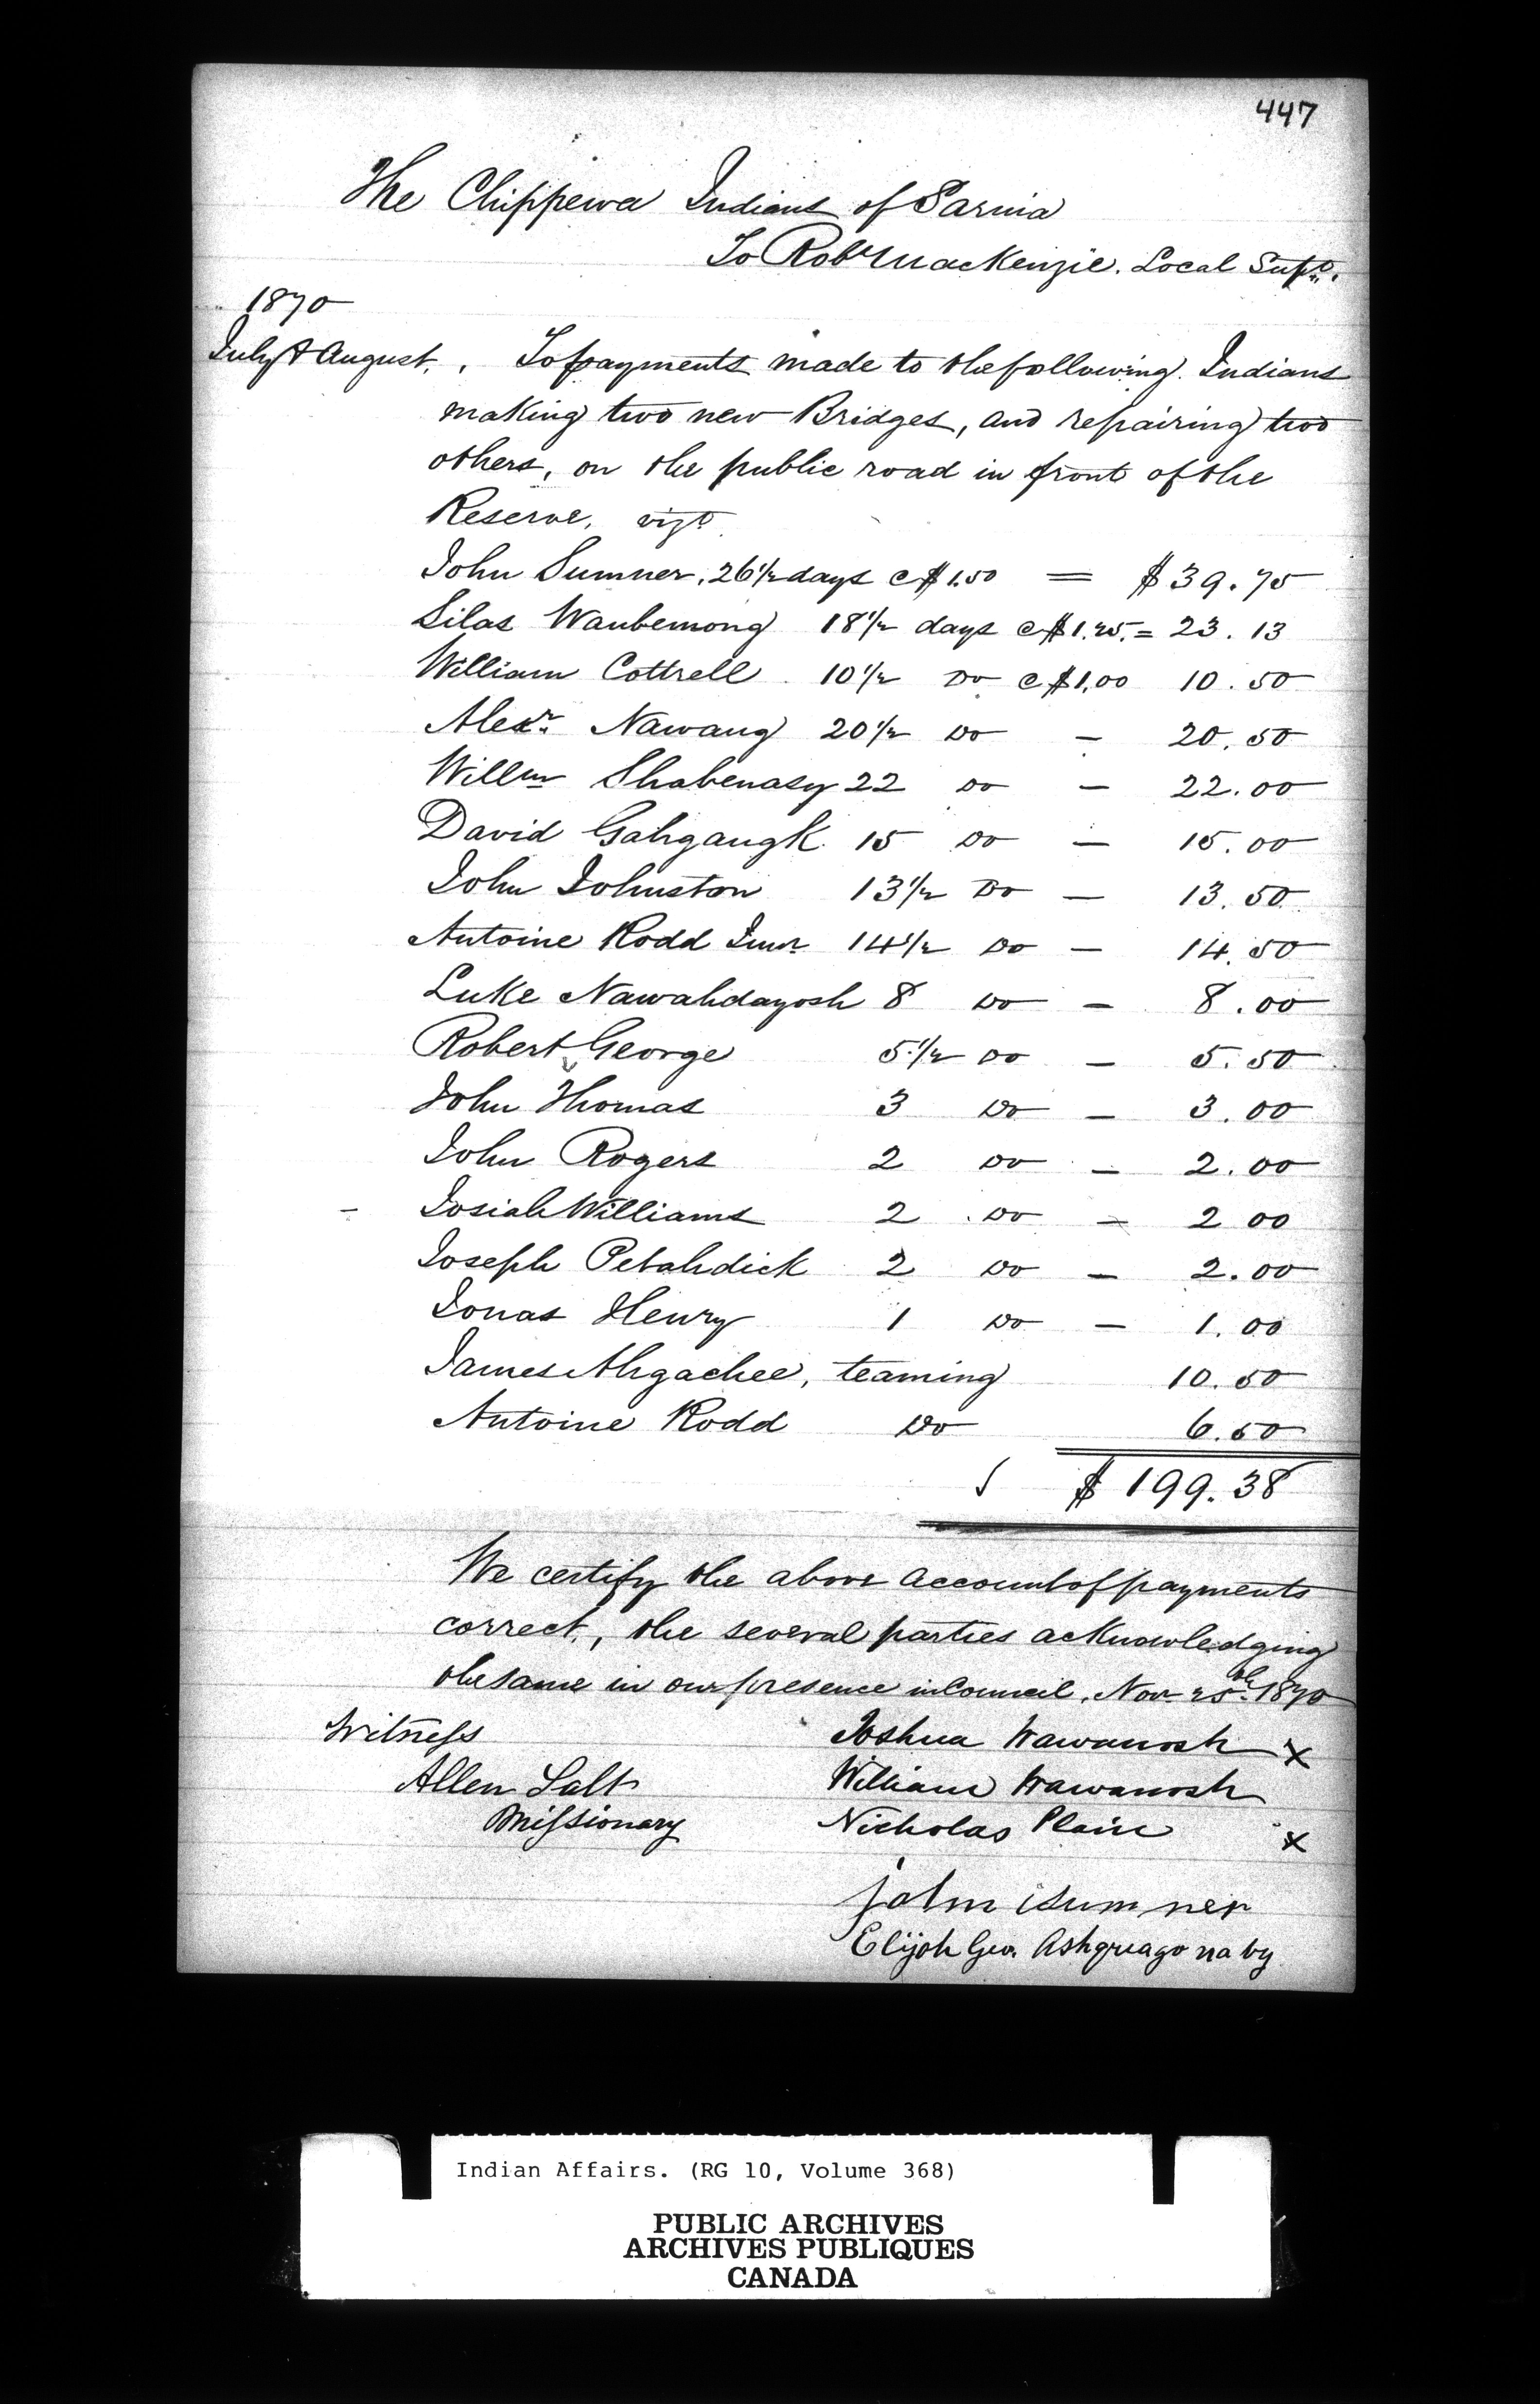 447
The Chippewa Indians of Sarnia
To Robt MacKenzie. Local Supt.
1870
July & August. , To payments made to the following Indians
making two new Bridges, and repairing two
others, on the public road in front of the
Reserve, vizt
John Sumner, 26 1/2 days @ $1.50 = $39.75
Silas Waubemong 18 1/2 days @ $1.25. = 23.13
William Cottrell 10 1/2 Do @ $1,00 10.50
Alexr. Nawang 20 1/2 Do - 20.50
Willm Shabenasy 22 Do - 22.00
David Gahgaugk 15 Do - 15.00
John Johnston 13 1/2 Do - 13.50
Antoine Rodd Junr. 14 1/2 Do - 14.50
Luke Nawahdayosh 8 Do - 8.00
Robert George 5 1/2 Do - 5.50
John Thomas 3 Do - 3.00
John Rogers 2 Do - 2.00
- Josiah Williams 2 Do - 2 00
Joseph Petahdick 2 Do - 2.00
Jonas Henry 1 Do - 1.00
James Ahgachee, teaming 10.50
Antoine Rodd Do 6.50
$ 199.38
We certify the above account of payments
correct, the several parties acknowledging
the same in our presence in Council, Nov. 25th 1870
Witness Joshua Wawanosh x
Allen Salt William Wawanosh
Missionary Nicholas Plain x
John Sumner
Elijah Geo. Ashquagonaby
Indian Affairs. (RG 10, Volume 368)
PUBLIC ARCHIVES
ARCHIVES PUBLIQUES
CANADA